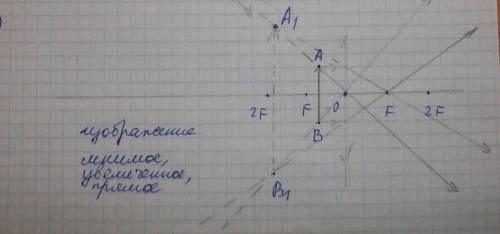 A₁
A
2F F O F 2F
B
изображение
мнимое,
увеличенное,
прямое
B₁